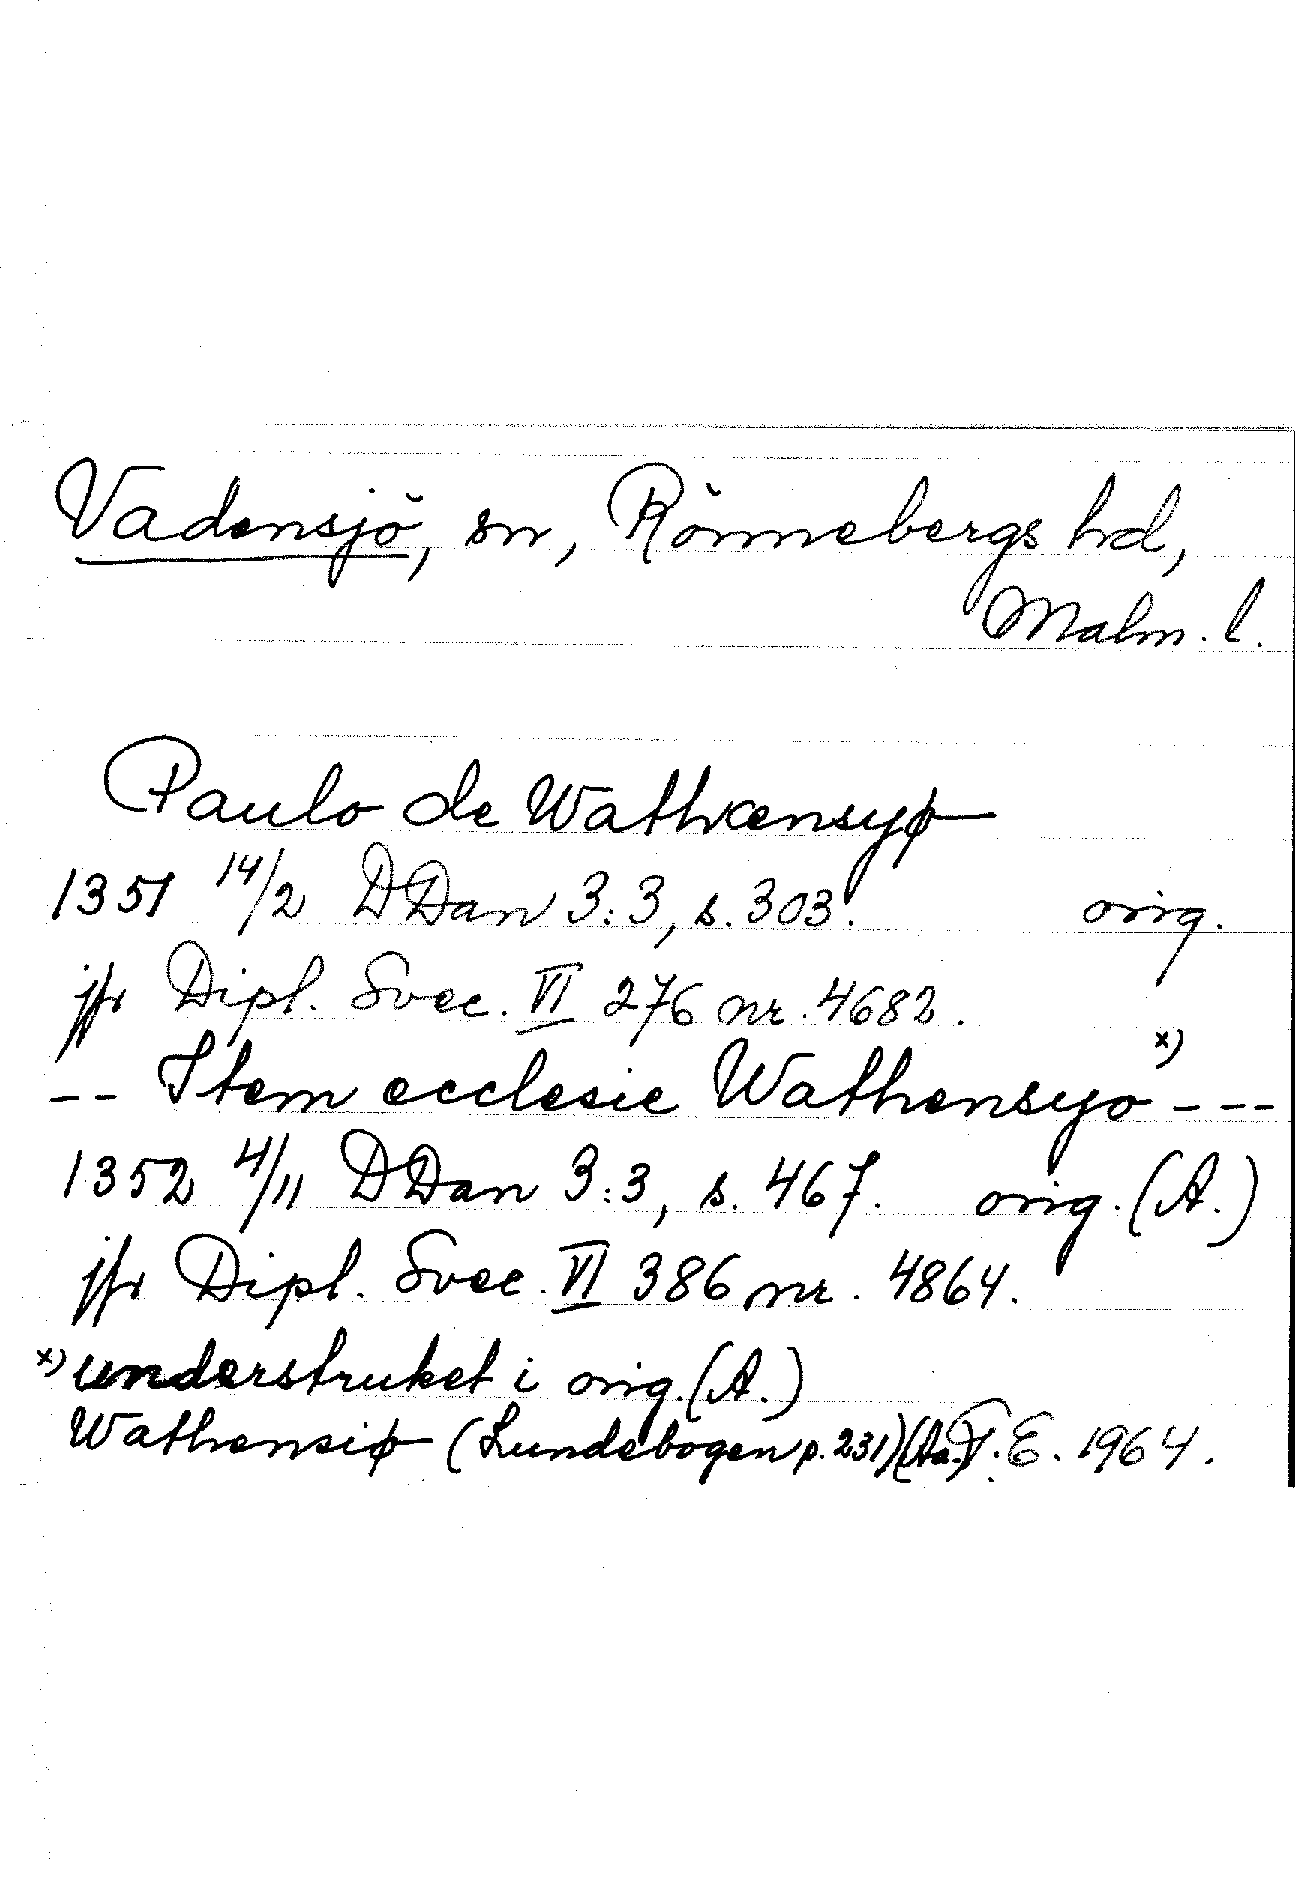 Vadensjö, sn, Rönnebergs hd,
Malm. l.
Paulo de Wathænsyø
1351 14/2 DDan 3:3, s. 303. orig.
jfr Dipl. Svec. VI 276 nr. 4682.
-- Item ecclesie Wathensyo x) ---
1352 4/11 DDan 3:3, s. 467. orig. (A.)
jfr Dipl. Svec. VI 386 nr. 4864.
x) understruket i orig. (A.)
Wathensiø (Lundebogen p. 231) (Aa.) T. E. 1964.